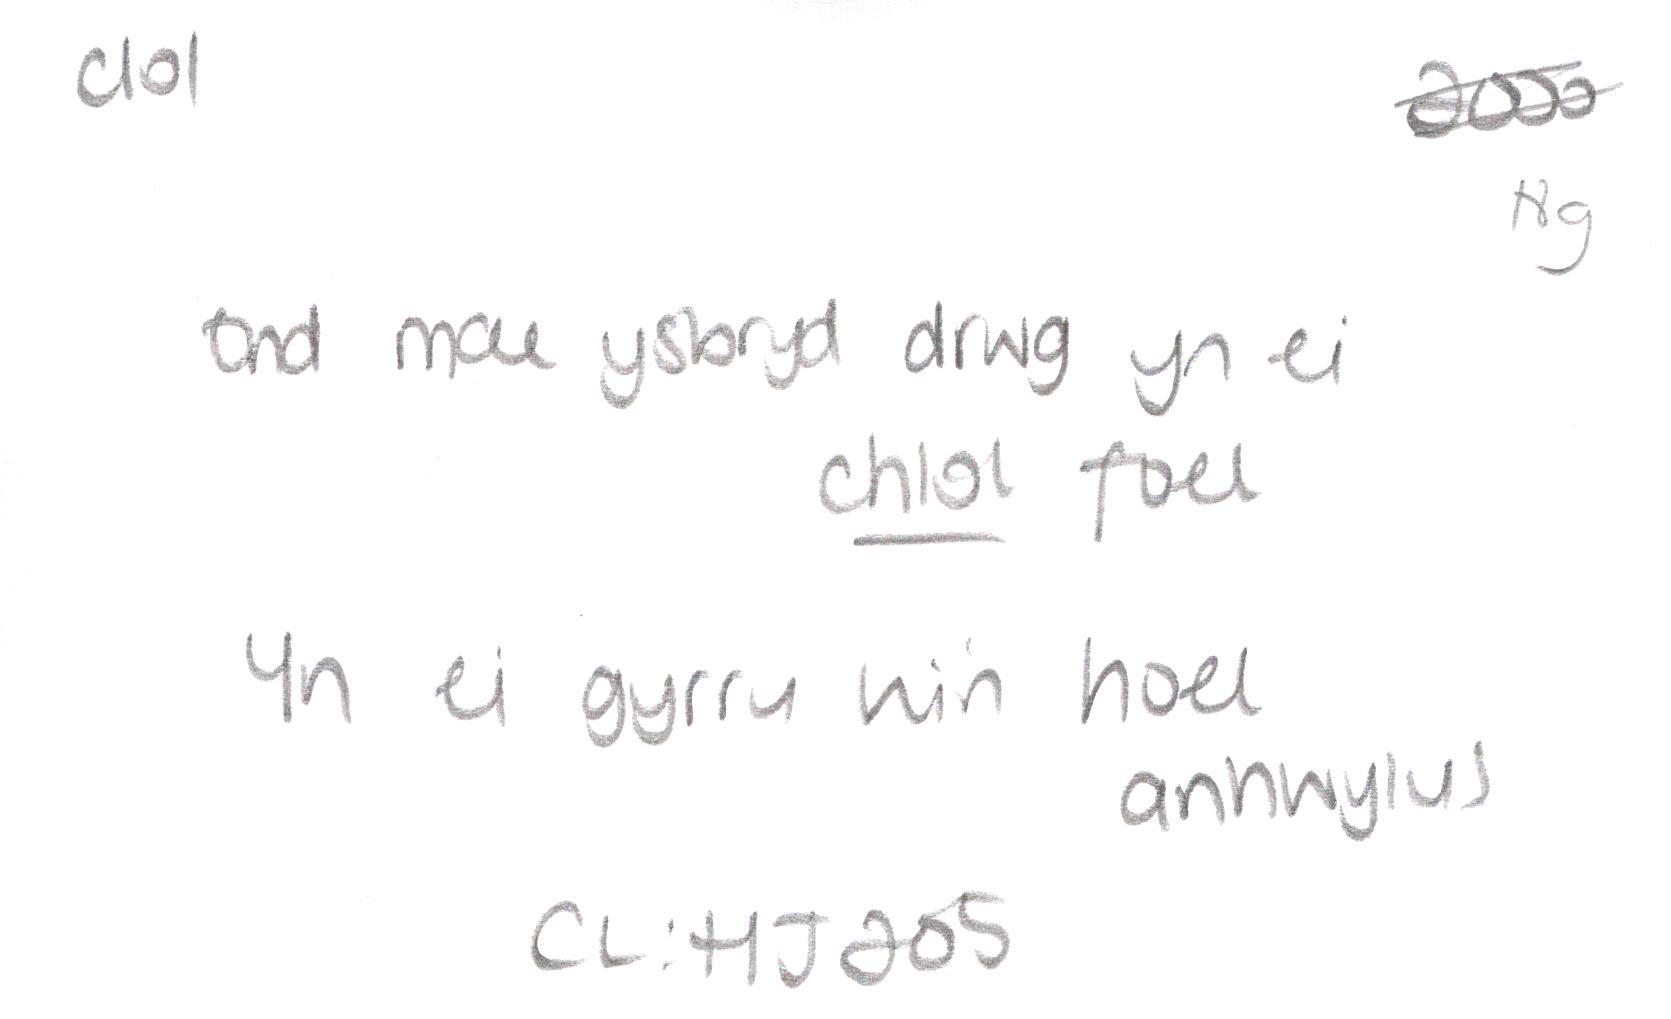 clol
Ng
Ond mae ysbryd drwg yn ei
chlol foel
Yn ei gyrru hi'n hoel
anhwylus
CL:HJ 205